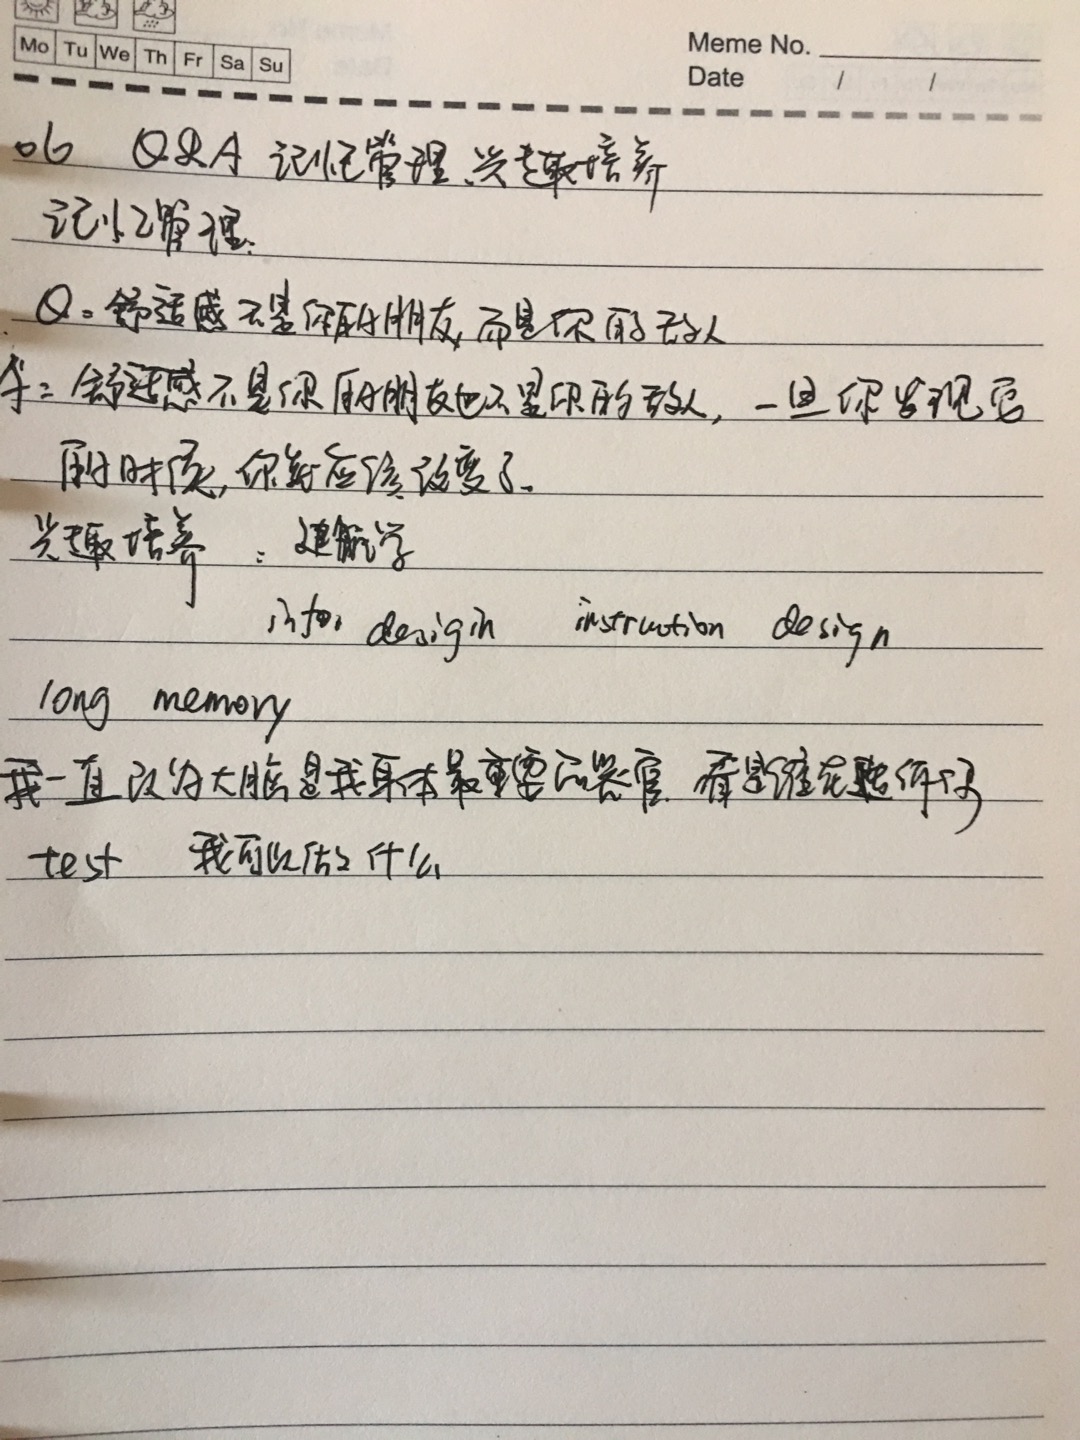 Mo Tu We Th Fr Sa Su
Meme No.
Date / /
06 Q&A 记忆管理、兴趣培养
记忆管理:
Q: 舒适感不是你的朋友,而是你的敌人
舒适感不是你的朋友也不是你的敌人,一旦你发现它
的时候,你就应该改变了.
兴趣培养 :
design instruction design
long memory
我一直认为大脑是我身体最重要的器官 看是谁在
test 我可以做什么